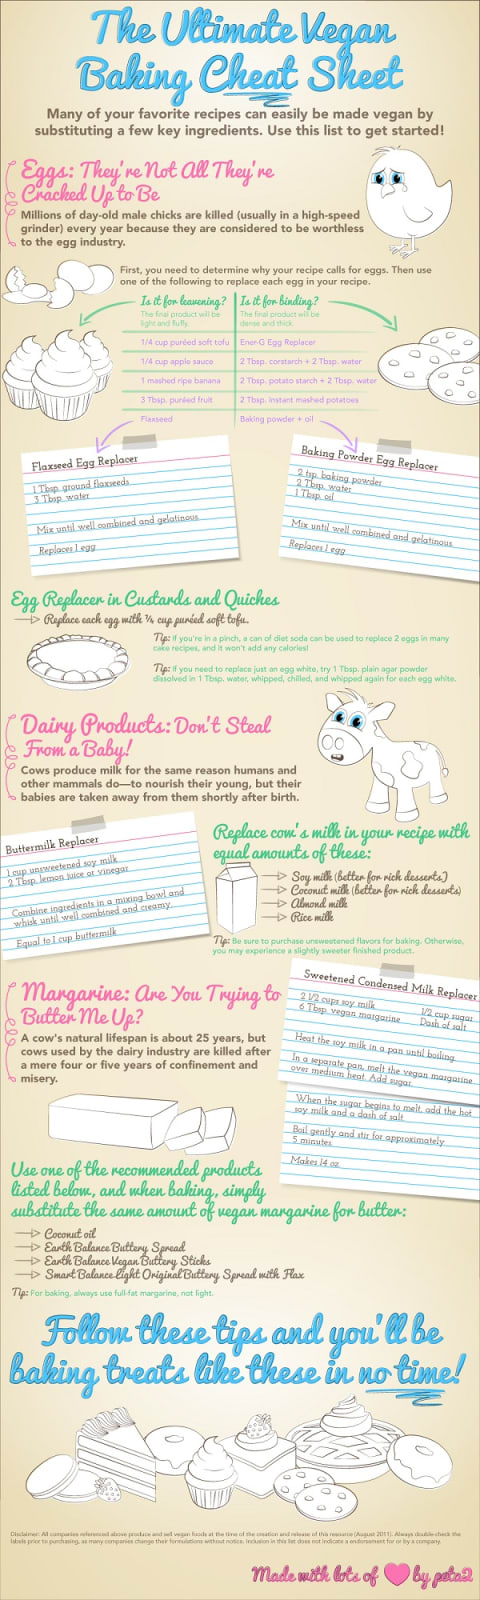 The Ultimate Vegan
Baking Cheat Sheet
Many of your favorite recipes can easily be made vegan by
substituting a few key ingredients. Use this list to get started!
Eggs: They're Not All They're
Cracked Up to Be
Millions of day-old male chicks are killed (usually in a high-speed
grinder) every year because they are considered to be worthless
to the egg industry.
First, you need to determine why your recipe calls for eggs. Then use
one of the following to replace each egg in your recipe.
Is it for leavening?
The final product will be
light and fluffy.
1/4 cup puréed soft tofu
1/4 cup apple sauce
1 mashed ripe banana
3 Tbsp. puréed fruit
Flaxseed
Is it for binding?
The final product will be
dense and thick.
Ener-G Egg Replacer
2 Tbsp. corstarch + 2 Tbsp. water
2 Tbsp. potato starch + 2 Tbsp. water
2 Tbsp. instant mashed potatoes
Baking powder + oil
Flaxseed Egg Replacer
1 Tbsp. ground flaxseeds
3 Tbsp. water
Mix until well combined and gelatinous.
Replaces 1 egg
Baking Powder Egg Replacer
2 tsp. baking powder
2 Tbsp. water
1 Tbsp. oil
Mix until well combined and gelatinous.
Replaces 1 egg
Egg Replacer in Custards and Quiches
Replace each egg with 1/4 cup puréed soft tofu.
Tip: If you're in a pinch, a can of diet soda can be used to replace 2 eggs in many
cake recipes, and it won't add any calories!
Tip: If you need to replace just an egg white, try 1 Tbsp. plain agar powder
dissolved in 1 Tbsp. water, whipped, chilled, and whipped again for each egg white.
Dairy Products: Don't Steal
From a Baby!
Cows produce milk for the same reason humans and
other mammals do—to nourish their young, but their
babies are taken away from them shortly after birth.
Buttermilk Replacer
1 cup unsweetened soy milk
2 Tbsp. lemon juice or vinegar
Combine ingredients in a mixing bowl and
whisk until well combined and creamy.
Equal to 1 cup buttermilk
Replace cow's milk in your recipe with
equal amounts of these:
Soy milk (better for rich desserts)
Coconut milk (better for rich desserts)
Almond milk
Rice milk
Tip: Be sure to purchase unsweetened flavors for baking. Otherwise,
you may experience a slightly sweeter finished product.
Margarine: Are You Trying to
Butter Me Up?
A cow's natural lifespan is about 25 years, but
cows used by the dairy industry are killed after
a mere four or five years of confinement and
misery.
Sweetened Condensed Milk Replacer
2 1/2 cups soy milk 1/2 cup sugar
6 Tbsp. vegan margarine Dash of salt
Heat the soy milk in a pan until boiling
In a separate pan, melt the vegan margarine
over medium heat. Add sugar.
When the sugar begins to melt, add the hot
soy milk and a dash of salt.
Boil gently and stir for approximately
5 minutes.
Makes 14 oz.
Use one of the recommended products
listed below, and when baking, simply
substitute the same amount of vegan margarine for butter:
Coconut oil
Earth Balance Buttery Spread
Earth Balance Vegan Buttery Sticks
Smart Balance Light Original Buttery Spread with Flax
Tip: For baking, always use full-fat margarine, not light.
Follow these tips and you'll be
baking treats like these in no time!
Disclaimer: All companies referenced above produce and sell vegan foods at the time of the creation and release of this resource (August 2011). Always double-check the
labels prior to purchasing, as many companies change their formulations without notice. Inclusion in this list does not indicate a endorsement for or by a company.
Made with lots of by peta2